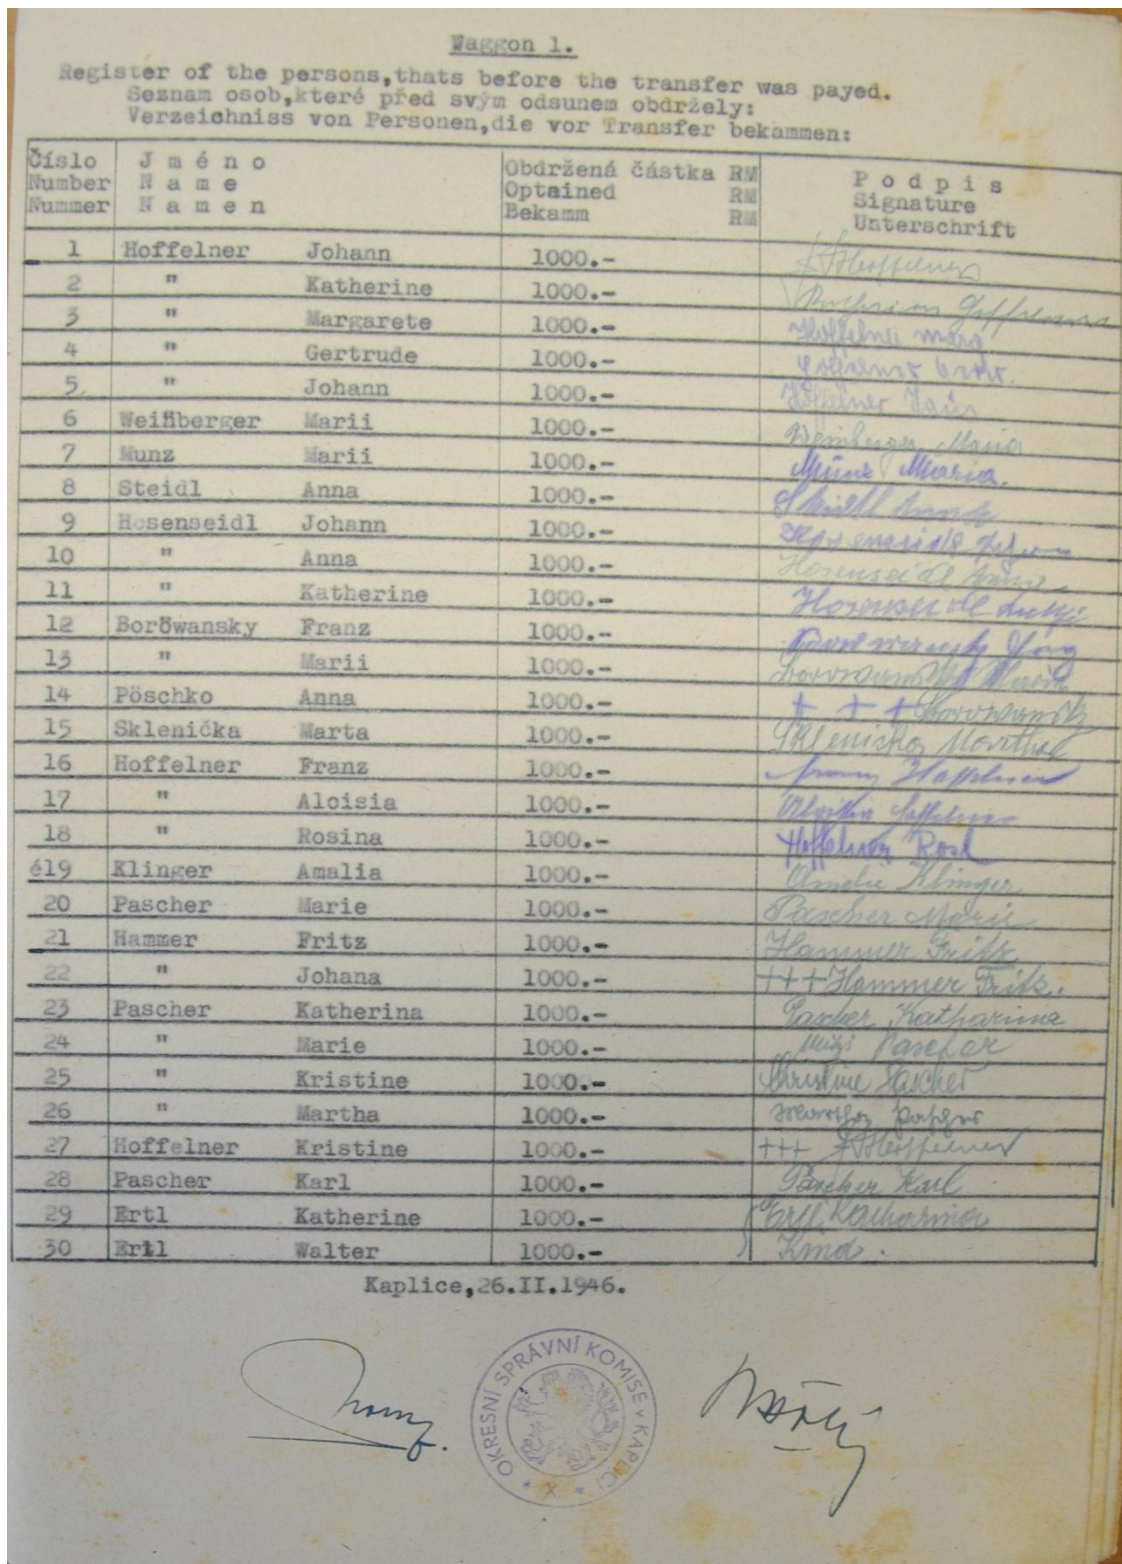 Waggon 1.
Register of the persons,thats before the transfer was payed.
Seznam osob,které před svým odsunem obdržely:
Verzeichniss von Personen,die vor Transfer bekammen:
Číslo Jméno Obdržená částka RM Podpis
Number Name Optained RM Signature
Nummer Namen Bekamm RM Unterschrift
1 Hoffelner Johann 1000.- Hoffelner
2 " Katherine 1000.-
3 " Margarete 1000.- Hoffelner Marg
4 " Gertrude 1000.-
5 " Johann 1000.- Hoffelner Hans
6 Weinberger Marii 1000.- Weinberger Maria
7 Munz Marii 1000.- Münz Maria.
8 Steidl Anna 1000.- Anna
9 Hosenseidl Johann 1000.-
10 " Anna 1000.- Hosenseidl Anna
11 " Katherine 1000.- Hosenseidl
12 Borowansky Franz 1000.-
13 " Marii 1000.- Maria
14 Pöschko Anna 1000.- + + +
15 Sklenička Marta 1000.- Sklenicka
16 Hoffelner Franz 1000.- Franz Hoffelner
17 " Aloisia 1000.-
18 " Rosina 1000.- Hoffelner Rosl
é19 Klinger Amalia 1000.- Amalie Klinger
20 Pascher Marie 1000.- Pascher Marie
21 Hammer Fritz 1000.- Hammer Fritz
22 " Johana 1000.- +++ Hammer Fritz.
23 Pascher Katherina 1000.- Pascher Katharina
24 " Marie 1000.- Mizi Pascher
25 " Kristine 1000.- Christine Pascher
26 " Martha 1000.- Martha Pascher
27 Hoffelner Kristine 1000.- +++ Hoffelner
28 Pascher Karl 1000.- Pascher Karl
29 Ertl Katherine 1000.- Ertl Katharina
30 Ertl Walter 1000.- Kind.
Kaplice,26.II.1946.
OKRESNÍ SPRÁVNÍ KOMISE V KAPLICI